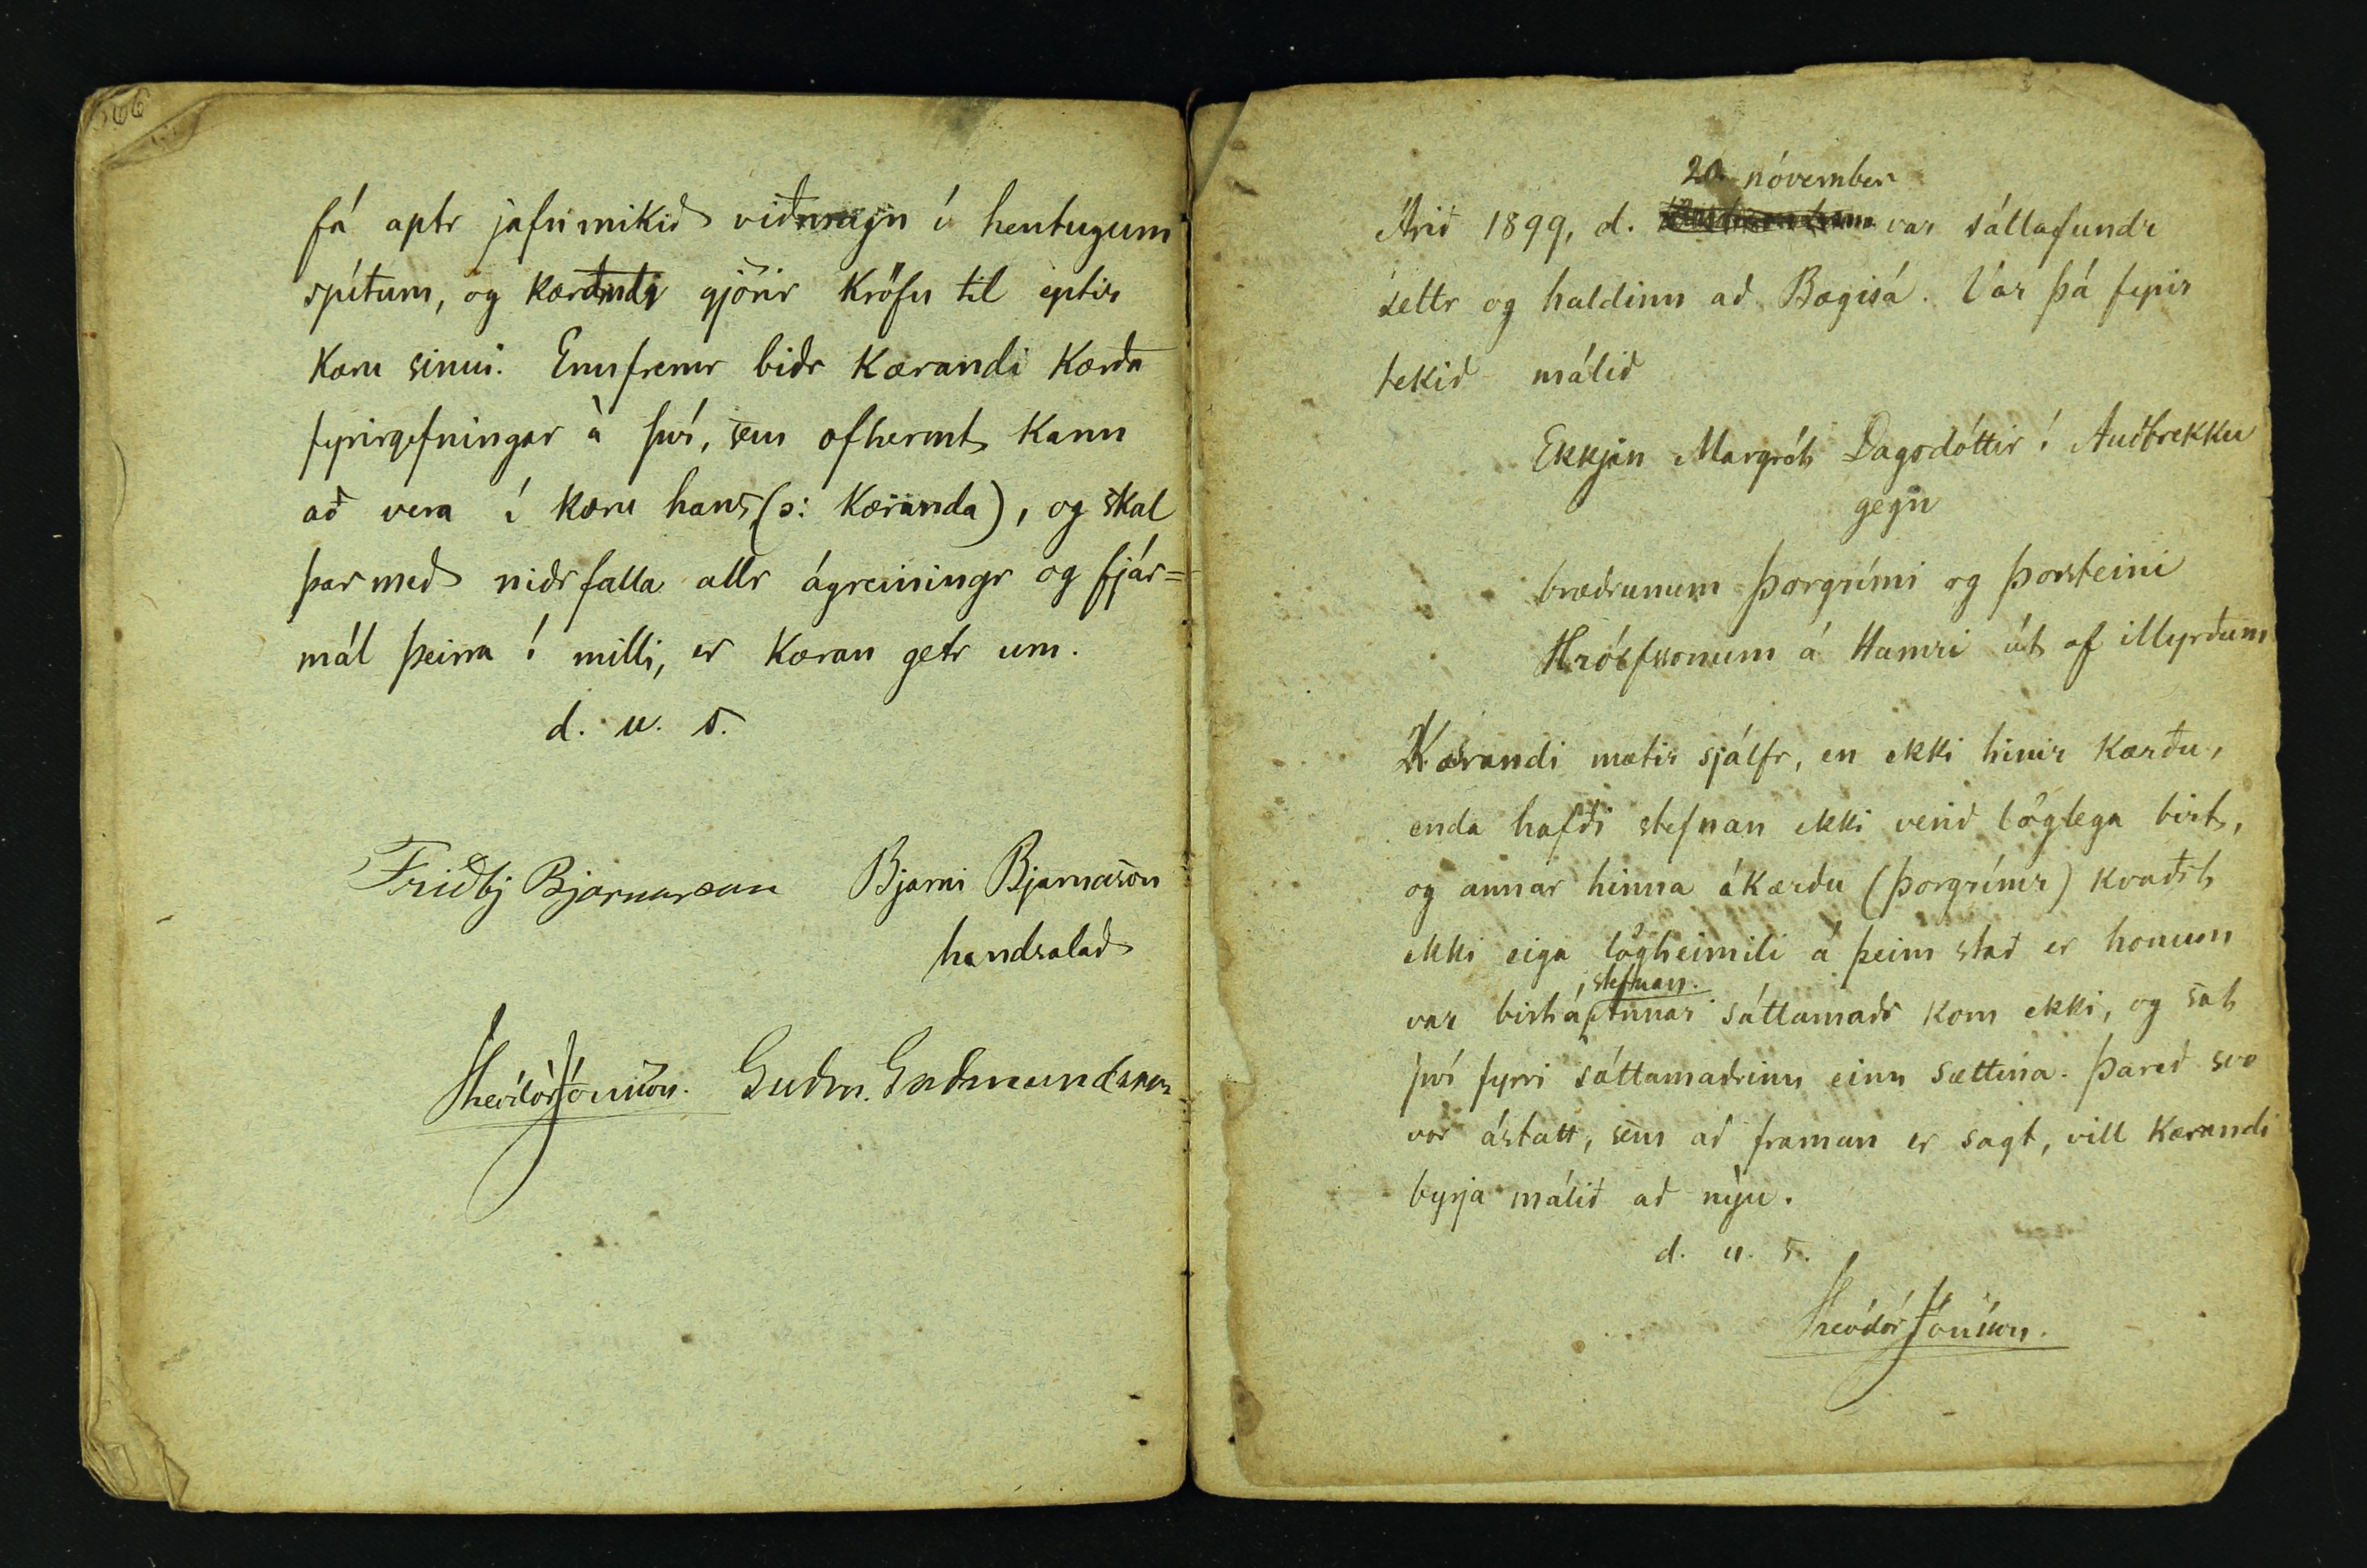 fá aptr jafnmikið viðmagn í hentugum
spítum, og kærandi gjörir kröfu til eptir
kæru sinni. Ennfremr biðr Kærandi Kærða
fyrirgefningar á því, sem ofhermt kann
að vera í kæru hans (ɔ: Kæranda), og skal
þar með niðrfalla allr ágreiningr og fjár=
mál þeirra í milli, er Kæran getr um.
d. u. s.
Friðbj Bjarnarson Bjarni Bjarnason
handsalað
Theódór Jónsson. Guðm. Guðmundsson
20. nóvember
Árið 1899, d. var sáttafundr
settr og haldinn að Bægisá. Var þá fyrir
tekið málið
Ekkjan Margrét Dagsdóttir í Auðbrekku
gegn
bræðrunum Þorgrími og Þorsteini
Hrólfssonum á Hamri út af illyrðum
Kærandi mætir sjálfr, en ekki hinir Kærðu,
enda hafði stefnan ekki verið löglega birt,
og annar hinna ákærðu (Þorgrímr) kvaðst
ekki eiga lögheimili á þeim stað er honum
stefnan.
var birt á, Annar sáttamaðr kom ekki, og sat
því fyrri sáttamaðrinn einn sættina. Þareð svo
var ástatt, sem að framan er sagt, vill Kærandi
byrja málið að nýju.
d. u. s.
Theódór Jónsson.